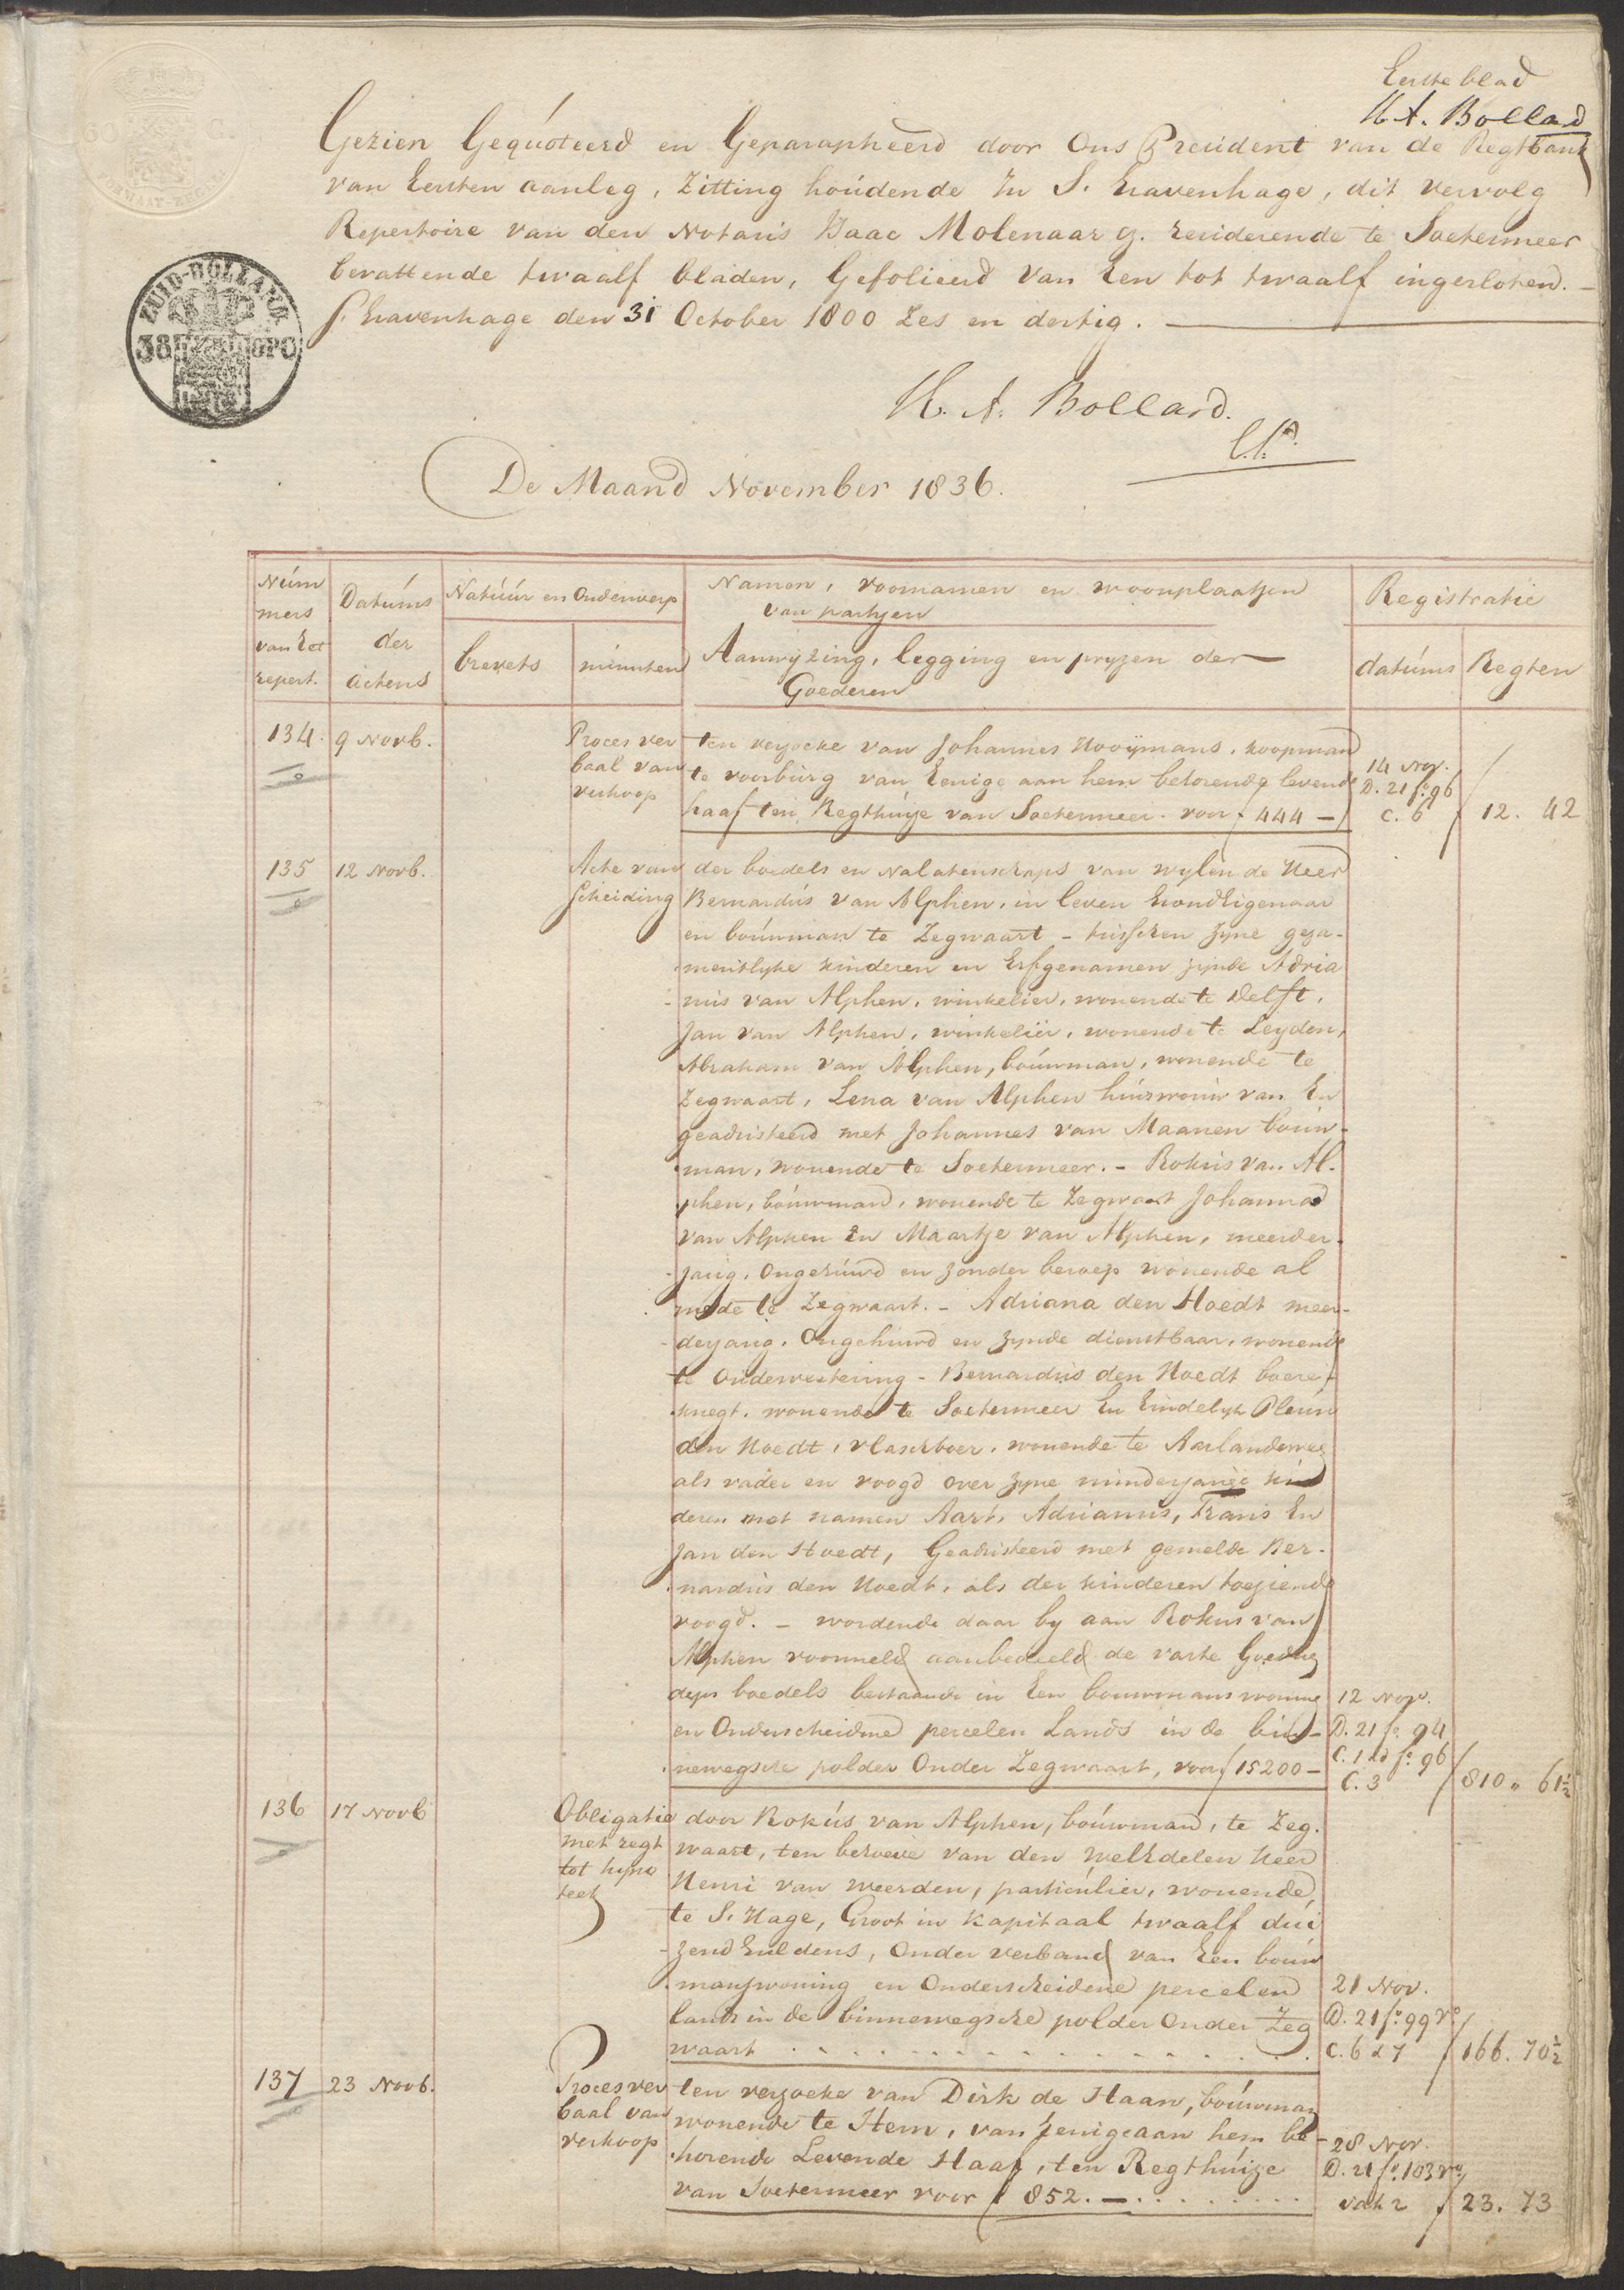 Eerste blad
H. A. Bollard
Gezien Gequoteerd en Geparapheerd door Ons President van de Regtbank
van Eersten aanleg, Zitting houdende In S. Gravenhage, dit vervolg
Repertoire van den Notaris Isaac Molenaar Gz. reciderende te Soetermeer
bevattende twaalf bladen, Gefolieerd van Een tot twaalf ingesloten. —
S. Gravenhage den 31 October 1800 Zes en dertig.
60 C.
ZUID-HOLLAND.
38 OPC
H. A. Bollard.
De Maand November 1836.
Num
mers
van het
repert.
Datums
der
actens
Natuur en Onderwerp
brevets
minuten
Namen, voornamen en woonplaatsen
van partijen
Aanwijzing, legging en pryzen der
Goederen
Registratie
datums
Regten
134. 9 Novb.
Proces ver
baal van
verkoop
ten verzoeke van Johannes Hooijmans, koopman
te voorburg van Eenige aan hem behorende levende
haaf ten Regthuize van Soetermeer. voor f 444 —
14 Nov.
D. 21 f.o 96
C. 6
12. 42
135 12 Novb.
Acte van
scheiding
der boedels en nalatenschaps van wylen de Heer
Bernardus van Alphen, in leven Grond Eigenaar
en bouwman te Zegwaart - tusschen zyne geza-
mentlyke kinderen en Erfgenamen zynde Adria
- nus van Alphen, winkelier, wonende te Delft,
Jan van Alphen, winkelier, wonende te Leyden,
Abraham van Alphen, bouwman, wonende te
Zegwaart, Lena van Alphen huisvrouw van En
geadsisteerd met Johannes van Maanen bouw-
man, wonende te Soetermeer. - Rokus van Al-
phen, bouwman, wonende te Zegwaart Johanna
van Alphen En Maartje van Alphen, meerder-
- jarig, ongehuwd en zonder beroep wonende al
mede te Zegwaart. - Adriana den Hoedt meer-
- derjarig, Ongehuwd en zynde dienstbaar, wonende
te Oudewetering - Bernardus den Hoedt boere-
knegt, wonende te Soetermeer En Eindelyk Pleun
den Hoedt, vlasboer, wonende te Aarlanderveen
als vader en voogd over zyne minderjarige kin
deren met namen Aart, Adrianus, Frans En
Jan den Hoedt, Geadsisteerd met gemelde Ber-
nardus den Hoedt, als der kinderen toeziende
voogd. - wordende daar by aan Rokus van
Alphen voormeld aanbedeeld de vaste Goederen
dezes boedels bestaande in Een bouwmanswoning
en Onderscheidene percelen Lands in de bin-
newegsche polder Onder Zegwaart, voor f 15200 —
12 Nov.
D. 21 f.o 94
C. 1 ad f.o 96
C. 3
810 „ 61½
136 17 Novb
Obligatie
met regt
tot hypo
teek
door Rokus van Alphen, bouwman, te Zeg-
waart, ten behoeve van den Weledelen Heer
Henri van Weerden, particulier, wonende
te S. Hage, Groot in kapitaal twaalf dui
- zend Guldens, Onder verband van Een bouw
manswoning en Onderscheidene percelen
lands in de binnewegsche polder Onder Zeg
waart . . . . . . . . . . . . . . . .
21 Nov.
D. 21 f.o 99 v.o
C. 6 & 7
166. 70½
137 23 Novb.
Proces ver
baal van
verkoop
ten verzoeke van Dirk de Haan, bouwman
wonende te Hem, van Eenige aan hem be-
horende Levende Haaf, ten Regthuize
van Soetermeer voor f 852. — . . . . . . . .
28 Nov.
D. 21 f.o 103 v.o
vak 2
23. 73